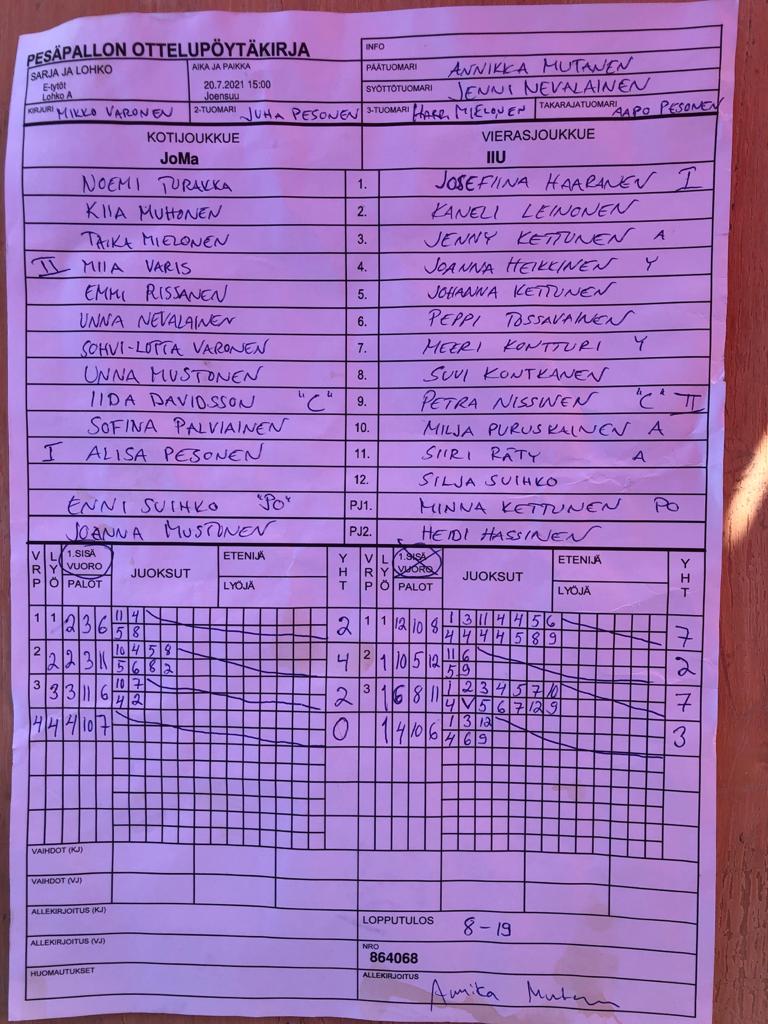 PESÄPALLON OTTELUPÖYTÄKIRJA
INFO
SARJA JA LOHKO
E-tytöt
Lohko A
AIKA JA PAIKKA
20.7.2021 15:00
Joensuu
PÄÄTUOMARI ANNIKKA MUTANEN
SYÖTTÖTUOMARI JENNI NEVALAINEN
KIRJURI MIKKO VARONEN 2-TUOMARI JUHA PESONEN 3-TUOMARI HARRI MIELONEN TAKARAJATUOMARI AAPO PESONEN
KOTIJOUKKUE VIERASJOUKKUE
JoMa IIU
NOEMI TURAKKA 1. JOSEFIINA HAARANEN I
KIIA MUHONEN 2. KANELI LEINONEN
TAIKA MIELONEN 3. JENNY KETTUNEN A
II MIIA VARIS 4. JOANNA HEIKKINEN Y
EMMI RISSANEN 5. JOHANNA KETTUNEN
UNNA NEVALAINEN 6. PEPPI TOSSAVAINEN
SOHVI-LOTTA VARONEN 7. MEERI KONTTURI Y
UNNA MUSTONEN 8. SUVI KONTKANEN
IIDA DAVIDSSON "C" 9. PETRA NISSINEN "C" II
SOFINA PALVIAINEN 10. MILJA PURUSKAINEN A
I ALISA PESONEN 11. SIIRI RÄTY A
12. SILJA SUIHKO
ENNI SUIHKO "PO" PJ1. MINNA KETTUNEN PO
JOANNA MUSTONEN PJ2. HEIDI HASSINEN
VRP LYÖ 1.SISÄ VUORO PALOT JUOKSUT ETENIJÄ LYÖJÄ YHT VRP LYÖ 1.SISÄ VUORO PALOT JUOKSUT ETENIJÄ LYÖJÄ YHT
1 1 2 3 6 11 4 2 1 1 12 10 8 1 3 11 4 4 5 6 7
5 8 4 4 4 4 5 8 9
2 2 2 3 11 10 4 5 8 4 2 1 10 5 12 11 6 2
5 6 8 2 5 9
3 3 3 11 6 10 7 2 3 1 6 8 11 1 2 3 4 5 7 10 7
4 2 4 V 5 6 7 12 9
4 4 4 10 7 0 1 4 10 6 1 3 12 3
4 6 9
VAIHDOT (KJ)
VAIHDOT (VJ)
ALLEKIRJOITUS (KJ)
LOPPUTULOS 8-19
ALLEKIRJOITUS (VJ)
NRO
864068
HUOMAUTUKSET
ALLEKIRJOITUS